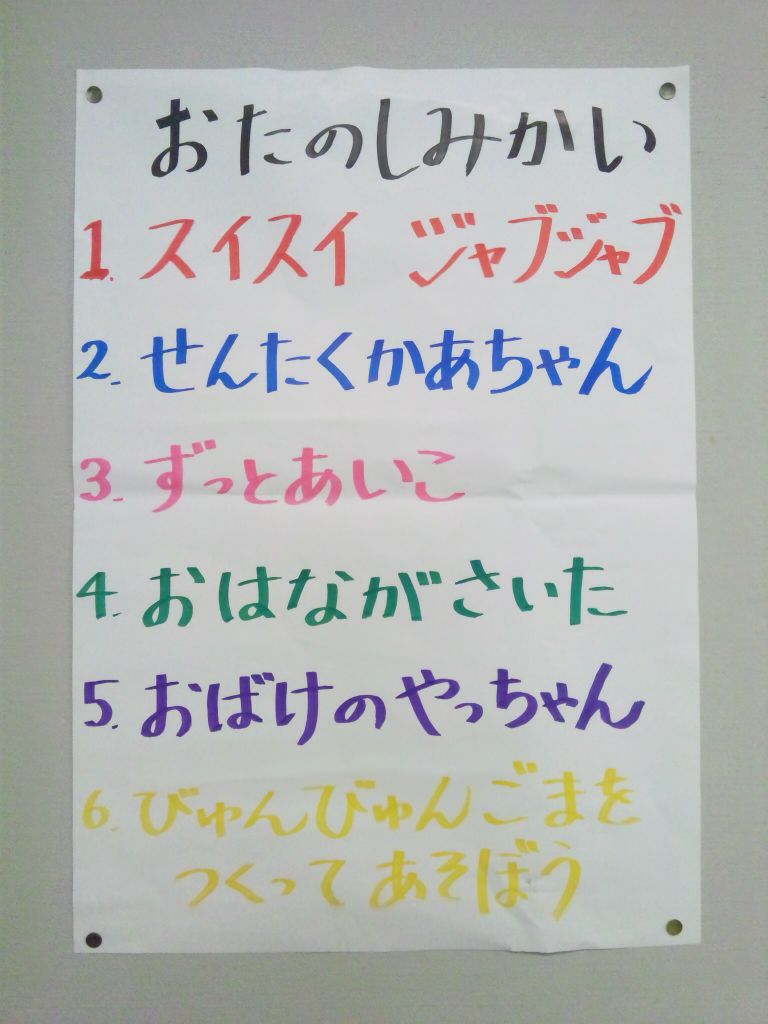 おたのしみかい
1. スイスイ ジャブジャブ
2. せんたくかあちゃん
3. ずっとあいこ
4. おはながさいた
5. おばけのやっちゃん
6. びゅんびゅんごまを
つくって あそぼう